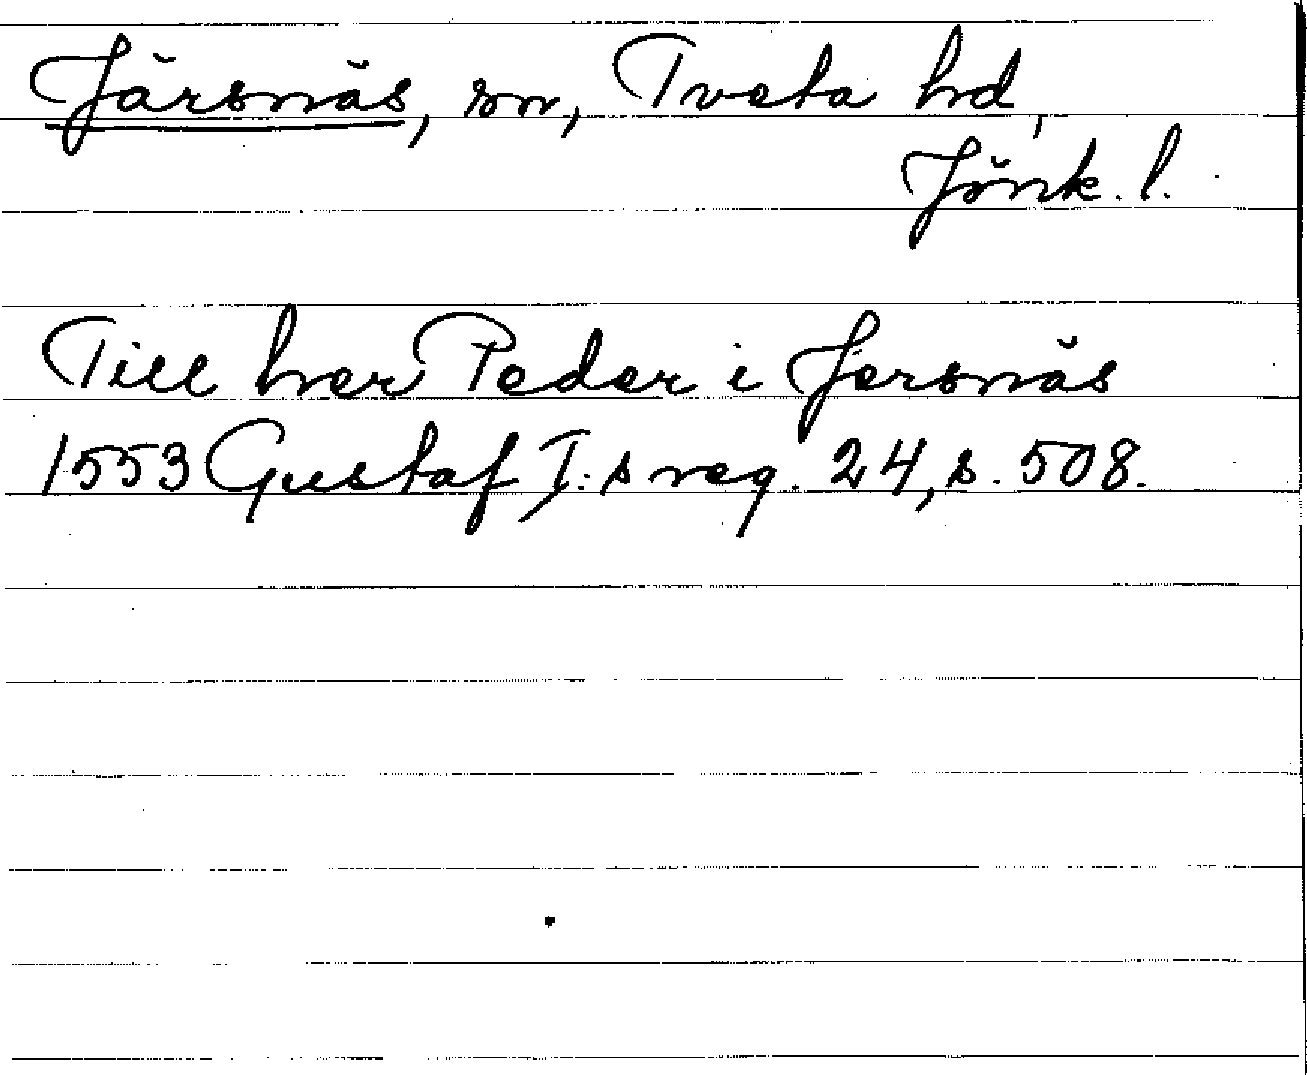 Järsnäs, sn, Tveta hd,
Jönk. l.
Till her Peder i Jersnäs
1553 Gustaf I:s reg. 24, s. 508.